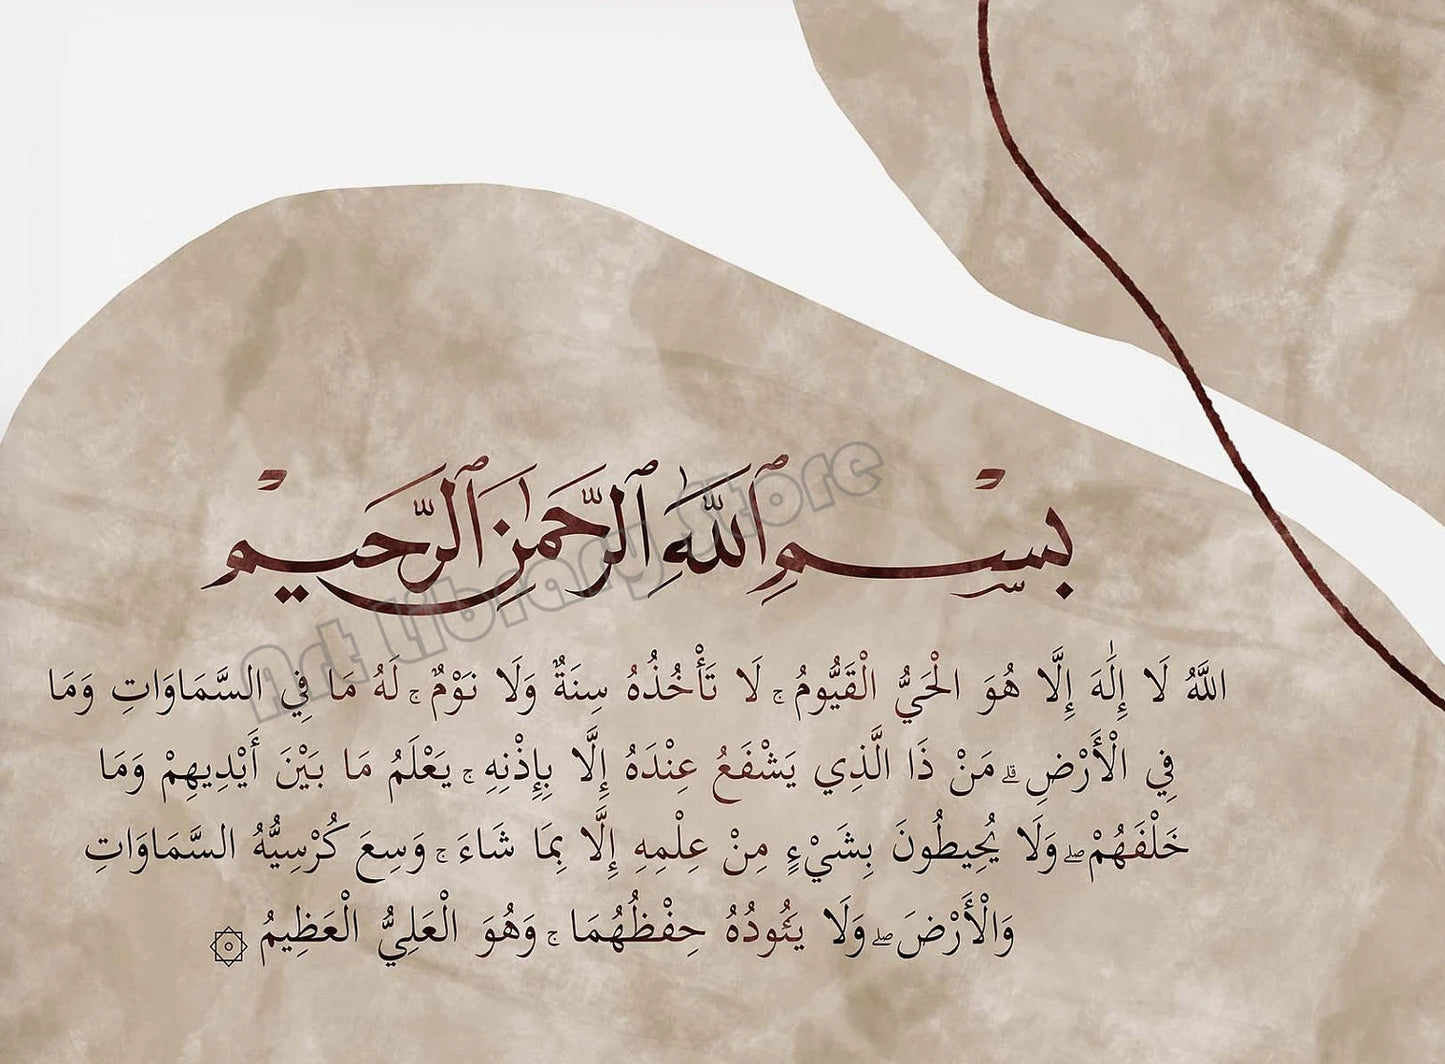 بِسْمِ ٱللَّهِ ٱلرَّحْمَٰنِ ٱلرَّحِيمْ
Art Library Store
اللَّهُ لَا إِلَٰهَ إِلَّا هُوَ الْحَيُّ الْقَيُّومُ ۚ لَا تَأْخُذُهُ سِنَةٌ وَلَا نَوْمٌ ۚ لَهُ مَا فِي السَّمَاوَاتِ وَمَا
فِي الْأَرْضِ ۗ مَنْ ذَا الَّذِي يَشْفَعُ عِنْدَهُ إِلَّا بِإِذْنِهِ ۚ يَعْلَمُ مَا بَيْنَ أَيْدِيهِمْ وَمَا
خَلْفَهُمْ ۖ وَلَا يُحِيطُونَ بِشَيْءٍ مِنْ عِلْمِهِ إِلَّا بِمَا شَاءَ ۚ وَسِعَ كُرْسِيُّهُ السَّمَاوَاتِ
وَالْأَرْضَ ۖ وَلَا يَئُودُهُ حِفْظُهُمَا ۚ وَهُوَ الْعَلِيُّ الْعَظِيمُ ۞